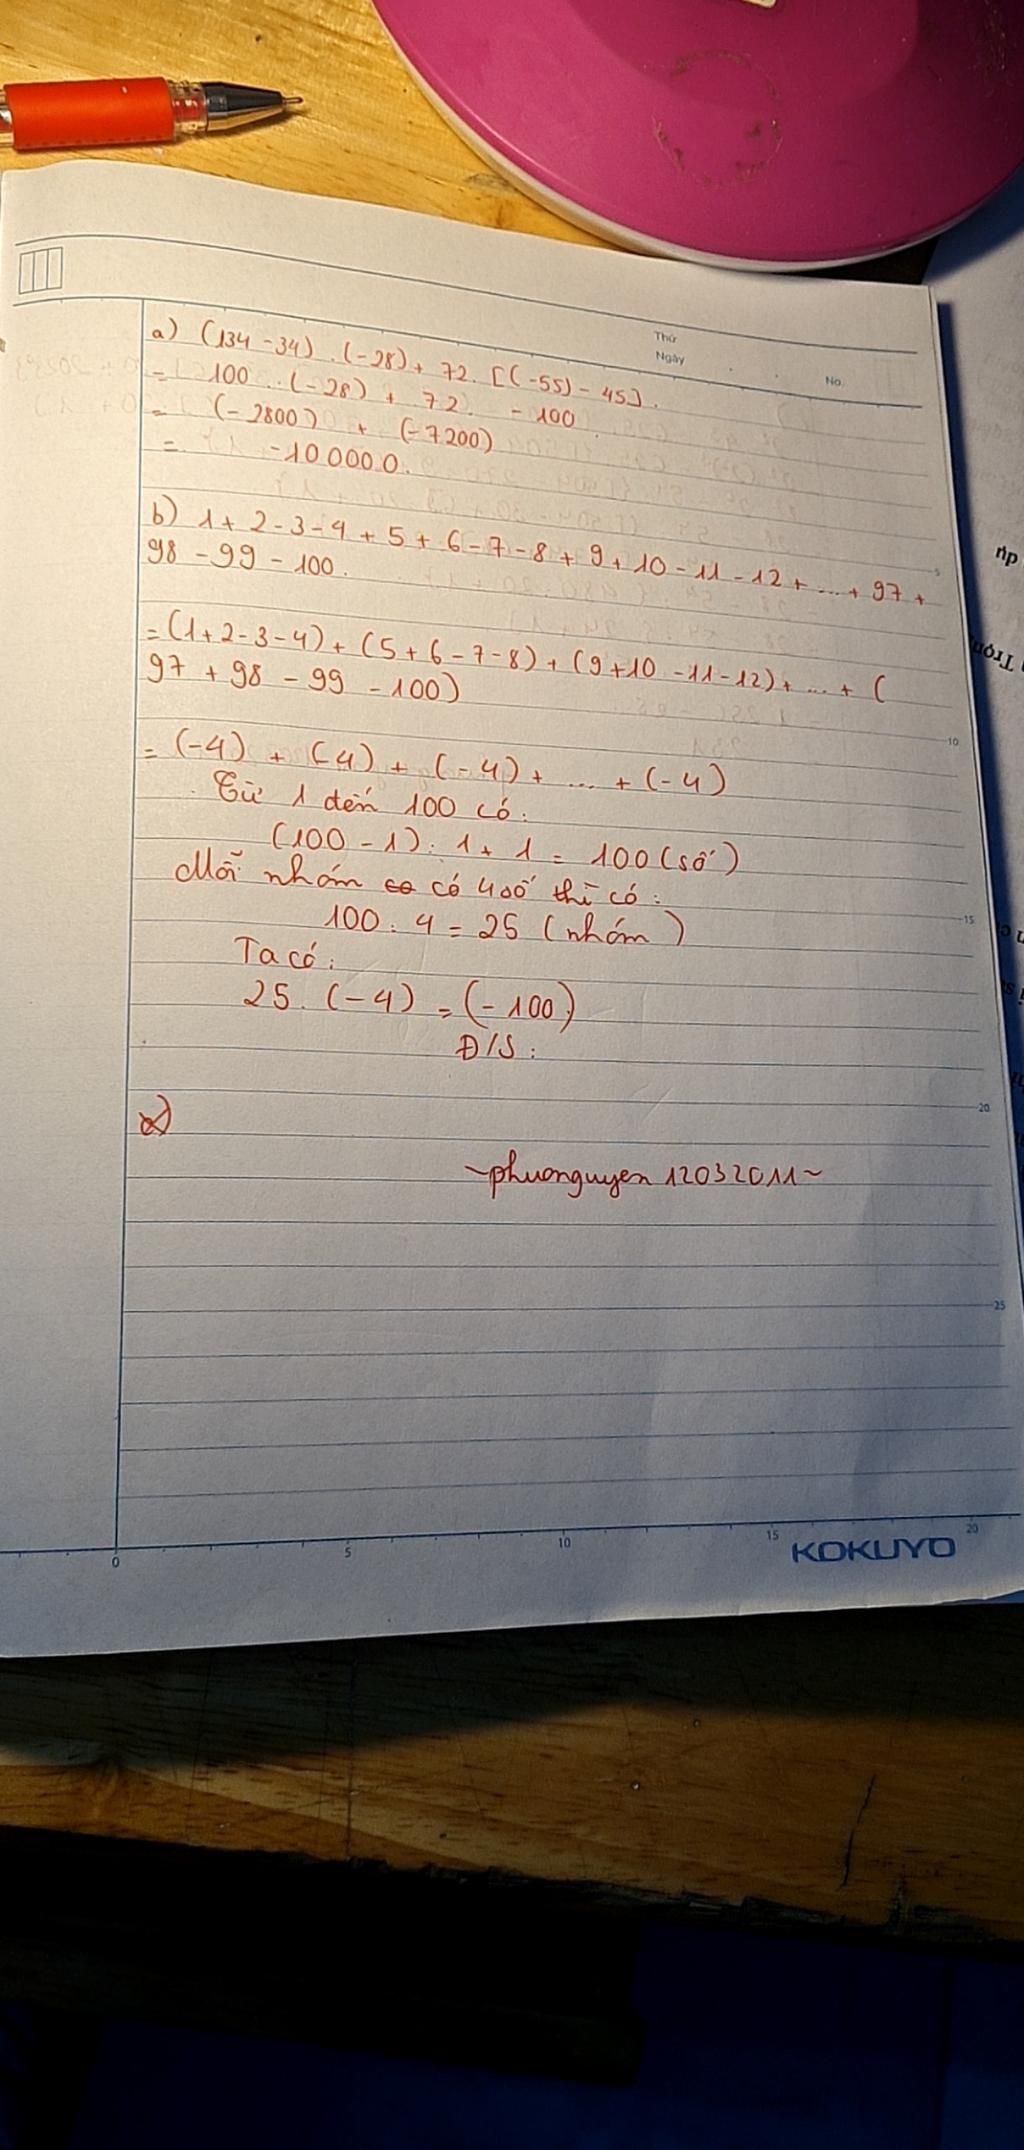 Thứ
Ngày
No.
a) (134 - 34) . (-28) + 72 . [(-55) - 45] .
= 100 . (-28) + 72 . - 100
= (-2800) + (-7200)
= -10000.
b) 1 + 2 - 3 - 4 + 5 + 6 - 7 - 8 + 9 + 10 - 11 - 12 + ... + 97 +
98 - 99 - 100 .
= (1 + 2 - 3 - 4) + (5 + 6 - 7 - 8) + (9 + 10 - 11 - 12) + ... + (
97 + 98 - 99 - 100)
= (-4) + (-4) + (-4) + ... + (-4)
Từ 1 đến 100 có :
(100 - 1) : 1 + 1 = 100 (số)
Mỗi nhóm có 4 số thì có :
100 : 4 = 25 (nhóm)
Ta có :
25 . (-4) = (-100)
Đ/S :
~phuonguyen 12032011~
5
10
15
20
25
0 5 10 15 20
KOKUYO